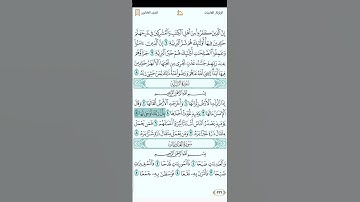 إِنَّ ٱلَّذِينَ كَفَرُوا۟ مِنْ أَهْلِ ٱلْكِتَٰبِ وَٱلْمُشْرِكِينَ فِى نَارِ جَهَنَّمَ
خَٰلِدِينَ فِيهَآ أُو۟لَٰٓئِكَ هُمْ شَرُّ ٱلْبَرِيَّةِ ٦ إِنَّ ٱلَّذِينَ ءَامَنُوا۟
وَعَمِلُوا۟ ٱلصَّٰلِحَٰتِ أُو۟لَٰٓئِكَ هُمْ خَيْرُ ٱلْبَرِيَّةِ ٧ جَزَآؤُهُمْ
عِندَ رَبِّهِمْ جَنَّٰتُ عَدْنٍ تَجْرِى مِن تَحْتِهَا ٱلْأَنْهَٰرُ خَٰلِدِينَ
فِيهَآ أَبَدًا رَّضِىَ ٱللَّهُ عَنْهُمْ وَرَضُوا۟ عَنْهُ ذَٰلِكَ لِمَنْ خَشِىَ رَبَّهُۥ ٨
سُورَةُ الزَّلْزَلَةِ
بِسْمِ ٱللَّهِ ٱلرَّحْمَٰنِ ٱلرَّحِيمِ
إِذَا زُلْزِلَتِ ٱلْأَرْضُ زِلْزَالَهَا ١ وَأَخْرَجَتِ ٱلْأَرْضُ أَثْقَالَهَا ٢ وَقَالَ
ٱلْإِنسَٰنُ مَا لَهَا ٣ يَوْمَئِذٍ تُحَدِّثُ أَخْبَارَهَا ٤ بِأَنَّ رَبَّكَ أَوْحَىٰ لَهَا ٥
يَوْمَئِذٍ يَصْدُرُ ٱلنَّاسُ أَشْتَاتًا لِّيُرَوْا۟ أَعْمَٰلَهُمْ ٦ فَمَن يَعْمَلْ
مِثْقَالَ ذَرَّةٍ خَيْرًا يَرَهُۥ ٧ وَمَن يَعْمَلْ مِثْقَالَ ذَرَّةٍ شَرًّا يَرَهُۥ ٨
سُورَةُ العَادِيَاتِ
بِسْمِ ٱللَّهِ ٱلرَّحْمَٰنِ ٱلرَّحِيمِ
وَٱلْعَٰدِيَٰتِ ضَبْحًا ١ فَٱلْمُورِيَٰتِ قَدْحًا ٢ فَٱلْمُغِيرَٰتِ
صُبْحًا ٣ فَأَثَرْنَ بِهِۦ نَقْعًا ٤ فَوَسَطْنَ بِهِۦ جَمْعًا ٥